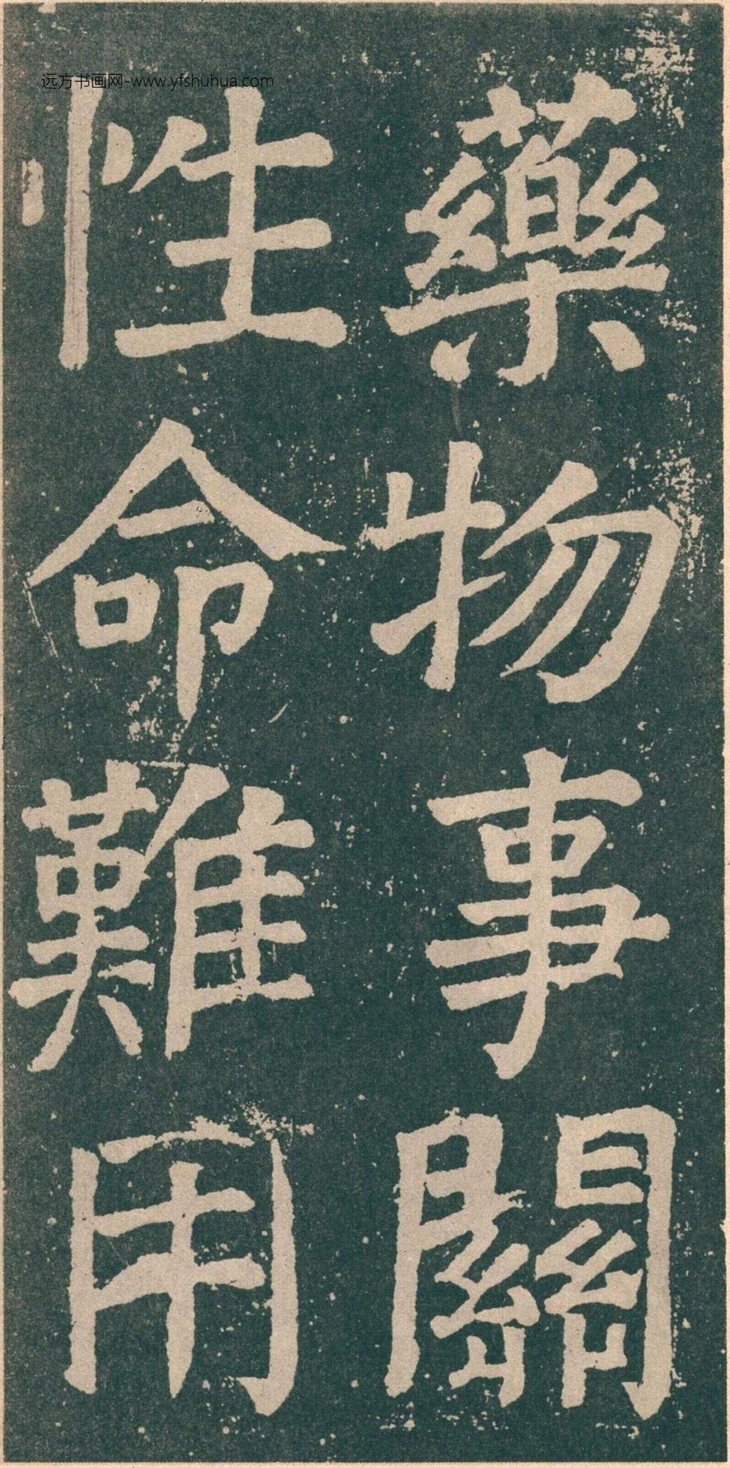 远方书画网-www.yfshuhua.com
藥物事關
性命難用